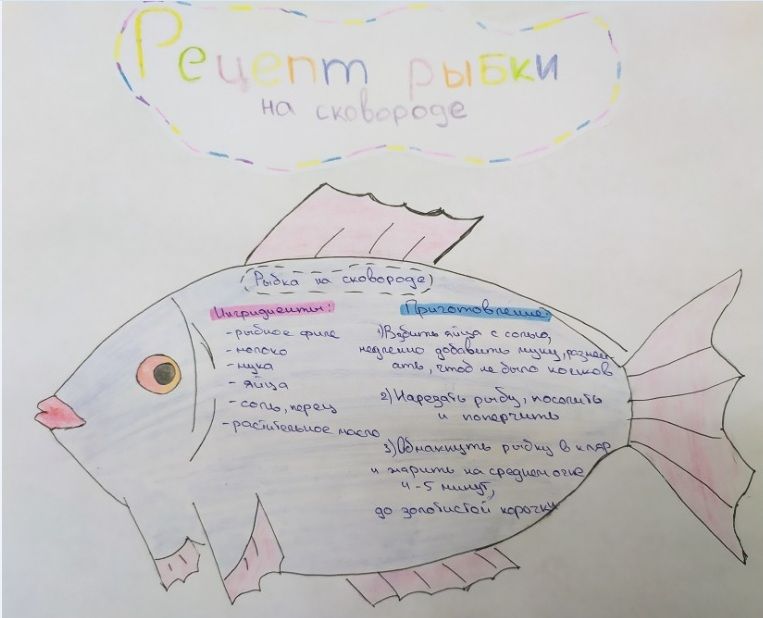 Рецепт рыбки
на сковороде
Рыбка на сковороде
Ингридиенты:
- рыбное филе
- молоко
- мука
- яйца
- соль, перец
- растительное масло
Приготовление:
1) Взбить яйца с солью,
медленно добавить муку, размеш-
ать, чтоб не было комков
2) Нарезать рыбу, посолить
и поперчить
3) Обмакнуть рыбку в кляр
и жарить на среднем огне
4-5 минут,
до золотистой корочки